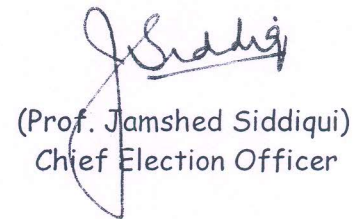 J Siddiqi
(Prof. Jamshed Siddiqui)
Chief Election Officer